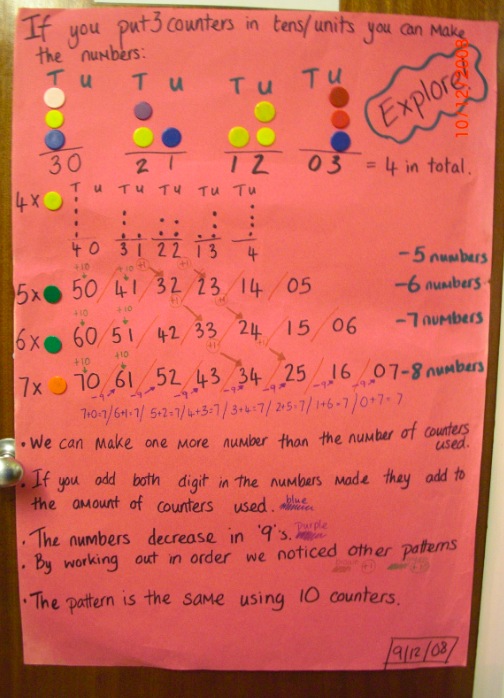 If you put 3 counters in tens/units you can make
the numbers:
T U T U T U T U
Explore
10/12/2008
30 21 12 03 = 4 in total.
T U T U T U T U T U
4x
40 31 22 13 4 -5 numbers
+10 +10 +1 +1
5x 50/41/32/23/14/05 -6 numbers
+10 +10 +1 +1
6x 60/51/42/33/24/15/06 -7 numbers
+10 +10 +1
7x 70/61/52/43/34/25/16/07 -8 numbers
-9 -9 -9 -9 -9 -9 -9
7+0=7/6+1=7/5+2=7/4+3=7/3+4=7/2+5=7/1+6=7/0+7=7
• We can make one more number than the number of counters
used.
• If you add both digit in the numbers made they add to
the amount of counters used. blue
• The numbers decrease in '9's. purple
• By working out in order we noticed other patterns
+1
• The pattern is the same using 10 counters.
9/12/08